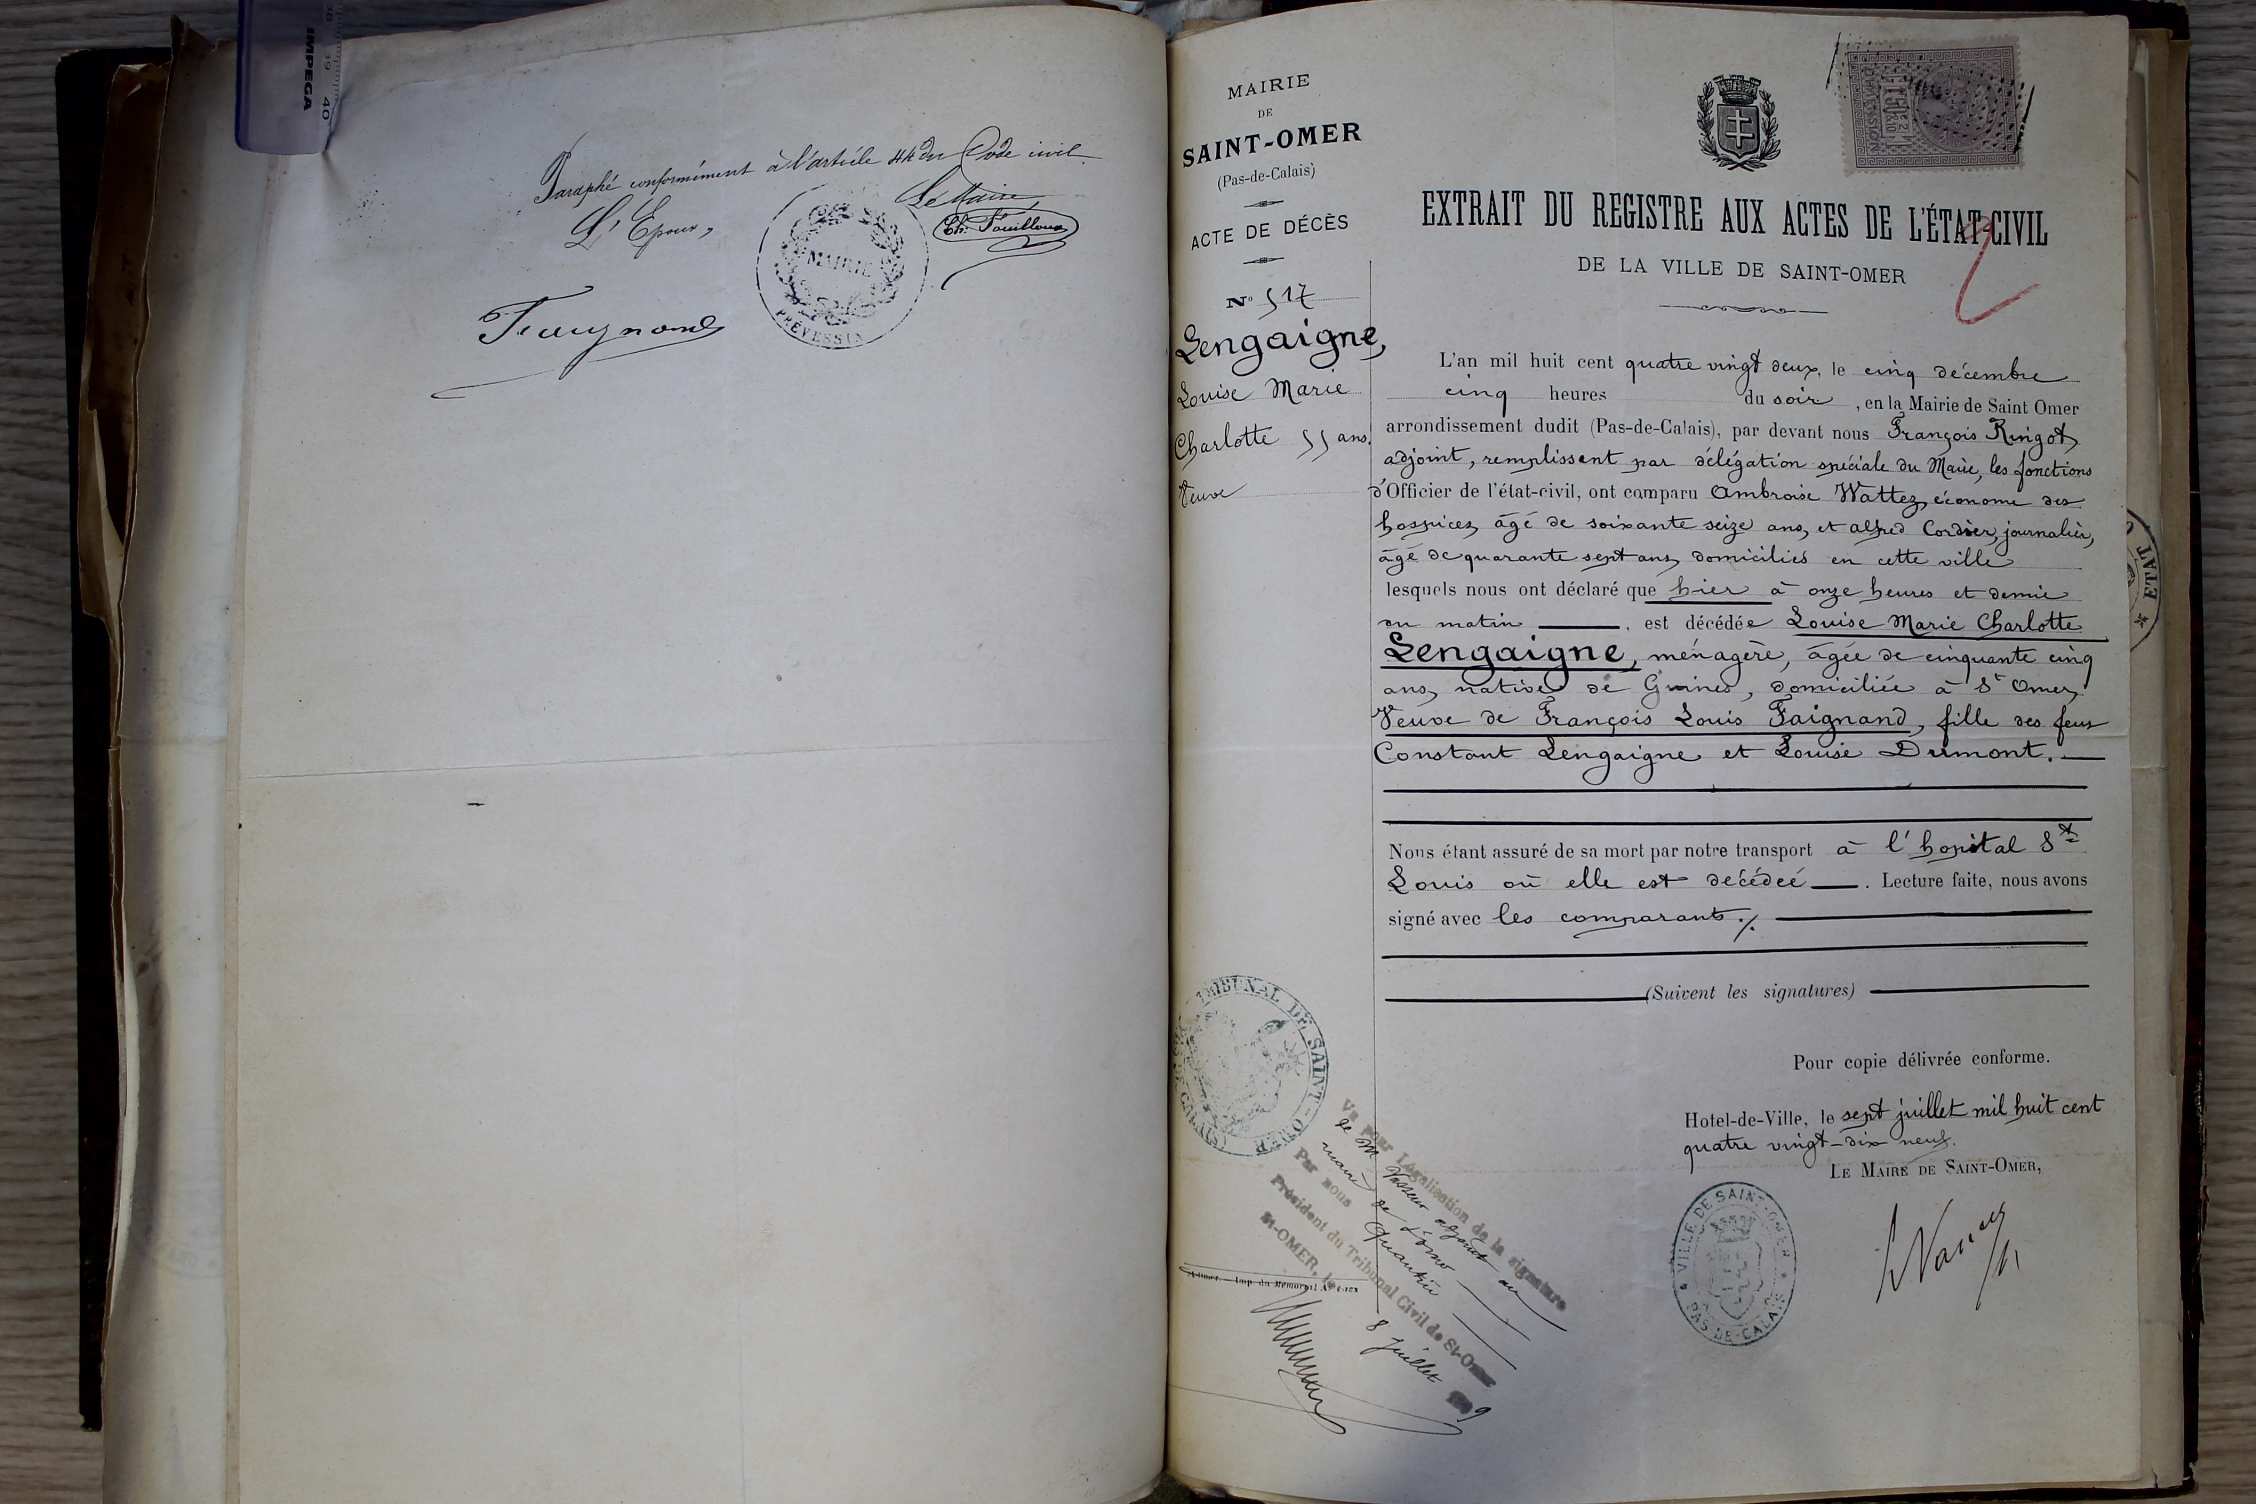 IMPEGA
39 40
Paraphé conformément à l'article 44 du Code civil
L'Epoux,
Le Maire,
Ch. Fouilloux
MAIRIE
PRÉVESSIN
MAIRIE
DE
SAINT-OMER
(Pas-de-Calais)
ACTE DE DÉCÈS
N° 517
Lengaigne,
Louise Marie
Charlotte 55 ans.
Veuve
EXTRAIT DU REGISTRE AUX ACTES DE L'ÉTAT-CIVIL
DE LA VILLE DE SAINT-OMER
2
L'an mil huit cent quatre vingt deux, le cinq décembre
cinq heures du soir, en la Mairie de Saint Omer
arrondissement dudit (Pas-de-Calais), par devant nous François Ringot,
adjoint, remplissant par délégation spéciale du Maire, les fonctions
d'Officier de l'état-civil, ont comparu Ambroise Wattez, économe des
hospices, âgé de soixante seize ans, et alfred Cordier, journalier,
âgé de quarante sept ans, domiciliés en cette ville
lesquels nous ont déclaré que hier à onze heures et demie
du matin, est décédée Louise Marie Charlotte
Lengaigne, ménagère, âgée de cinquante cinq
ans, native de Guines, domiciliée à St Omer,
Veuve de François Louis Faignand, fille des feus
Constant Lengaigne et Louise Dumont.
Nous étant assuré de sa mort par notre transport à l'hopital St
Louis où elle est décédée. Lecture faite, nous avons
signé avec les comparants ./.
(Suivent les signatures)
Pour copie délivrée conforme.
Hotel-de-Ville, le sept juillet mil huit cent
quatre vingt-dix neuf.
LE MAIRE DE SAINT-OMER,
VILLE DE SAINT-OMER
PAS-DE-CALAIS
TRIBUNAL DE SAINT-OMER
Vu pour Légalisation de la signature
de M Vasseur adjoint au
maire de St Omer
Par nous
Président du Tribunal Civil de St-Omer
St-OMER, le 8 Juillet 1899
ETAT